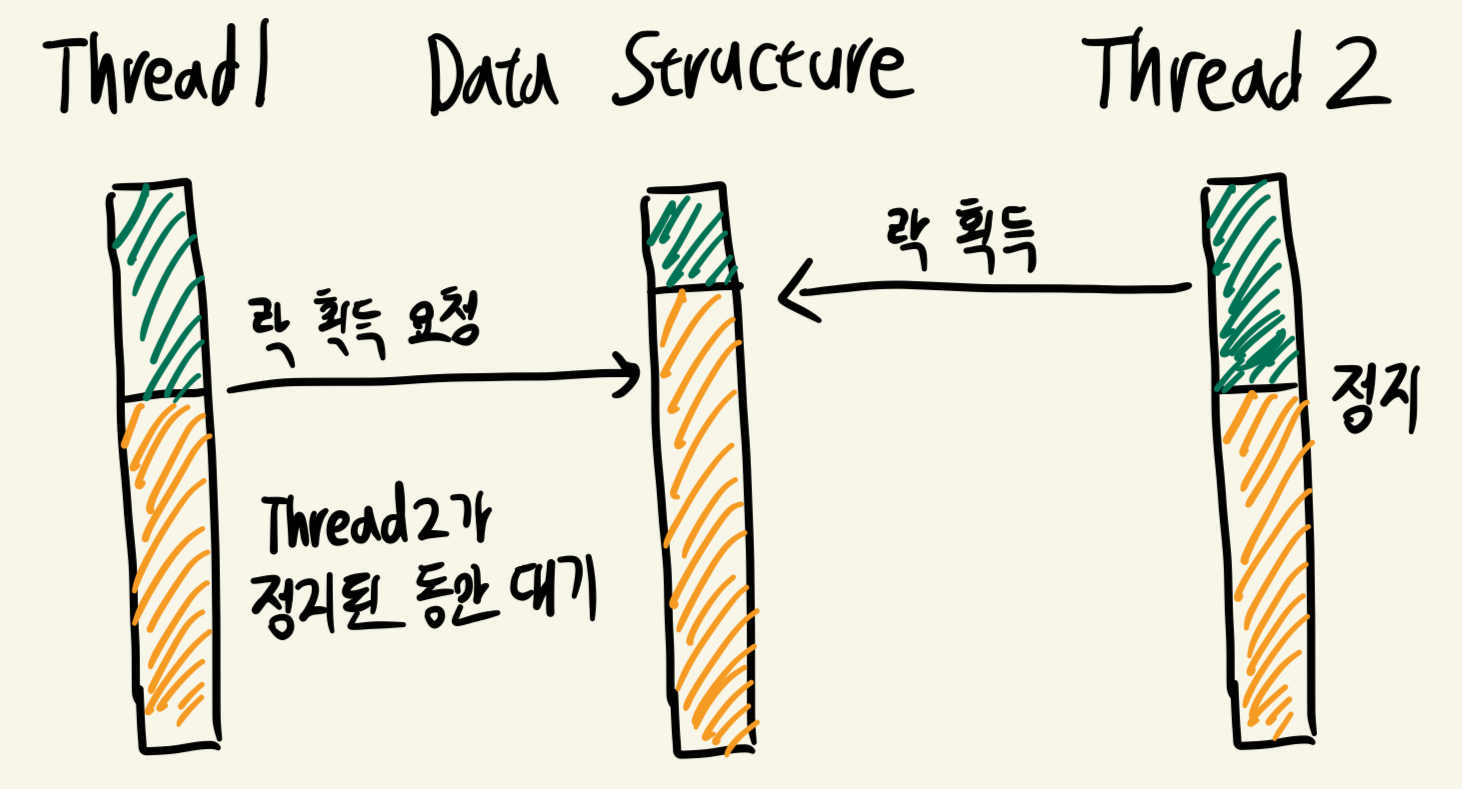 Thread 1
Data Structure
Thread 2
락 획득
락 획득 요청
정지
Thread 2가
정지된 동안 대기